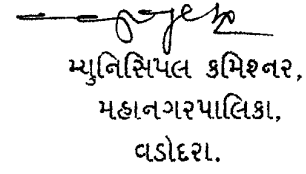 મ્યુનિસિપલ કમિશ્નર,
મહાનગરપાલિકા,
વડોદરા.